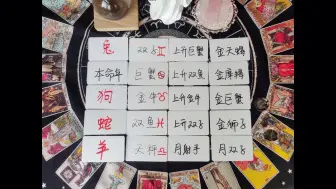 兔 双子♊ 上升巨蟹 金天蝎
本命年 巨蟹♋ 上升双鱼 金摩羯
狗 金牛♉ 上升金牛 金巨蟹
蛇 双鱼♓ 上升双子 金狮子
羊 天秤♎ 月射手 月双子